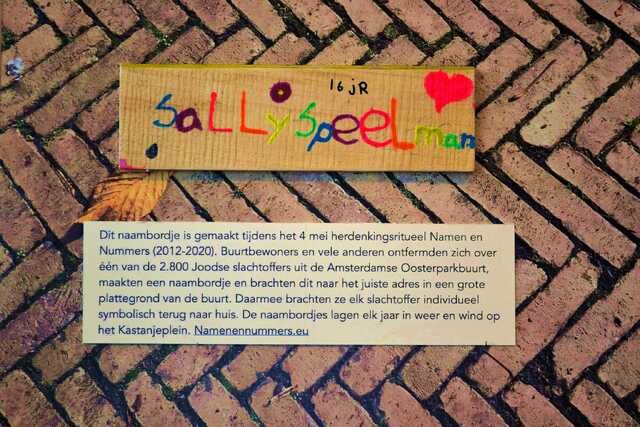 16 jR
SaLLy SpeeLman
Dit naambordje is gemaakt tijdens het 4 mei herdenkingsritueel Namen en
Nummers (2012-2020). Buurtbewoners en vele anderen ontfermden zich over
één van de 2.800 Joodse slachtoffers uit de Amsterdamse Oosterparkbuurt,
maakten een naambordje en brachten dit naar het juiste adres in een grote
plattegrond van de buurt. Daarmee brachten ze elk slachtoffer individueel
symbolisch terug naar huis. De naambordjes lagen elk jaar in weer en wind op
het Kastanjeplein. Namenennummers.eu